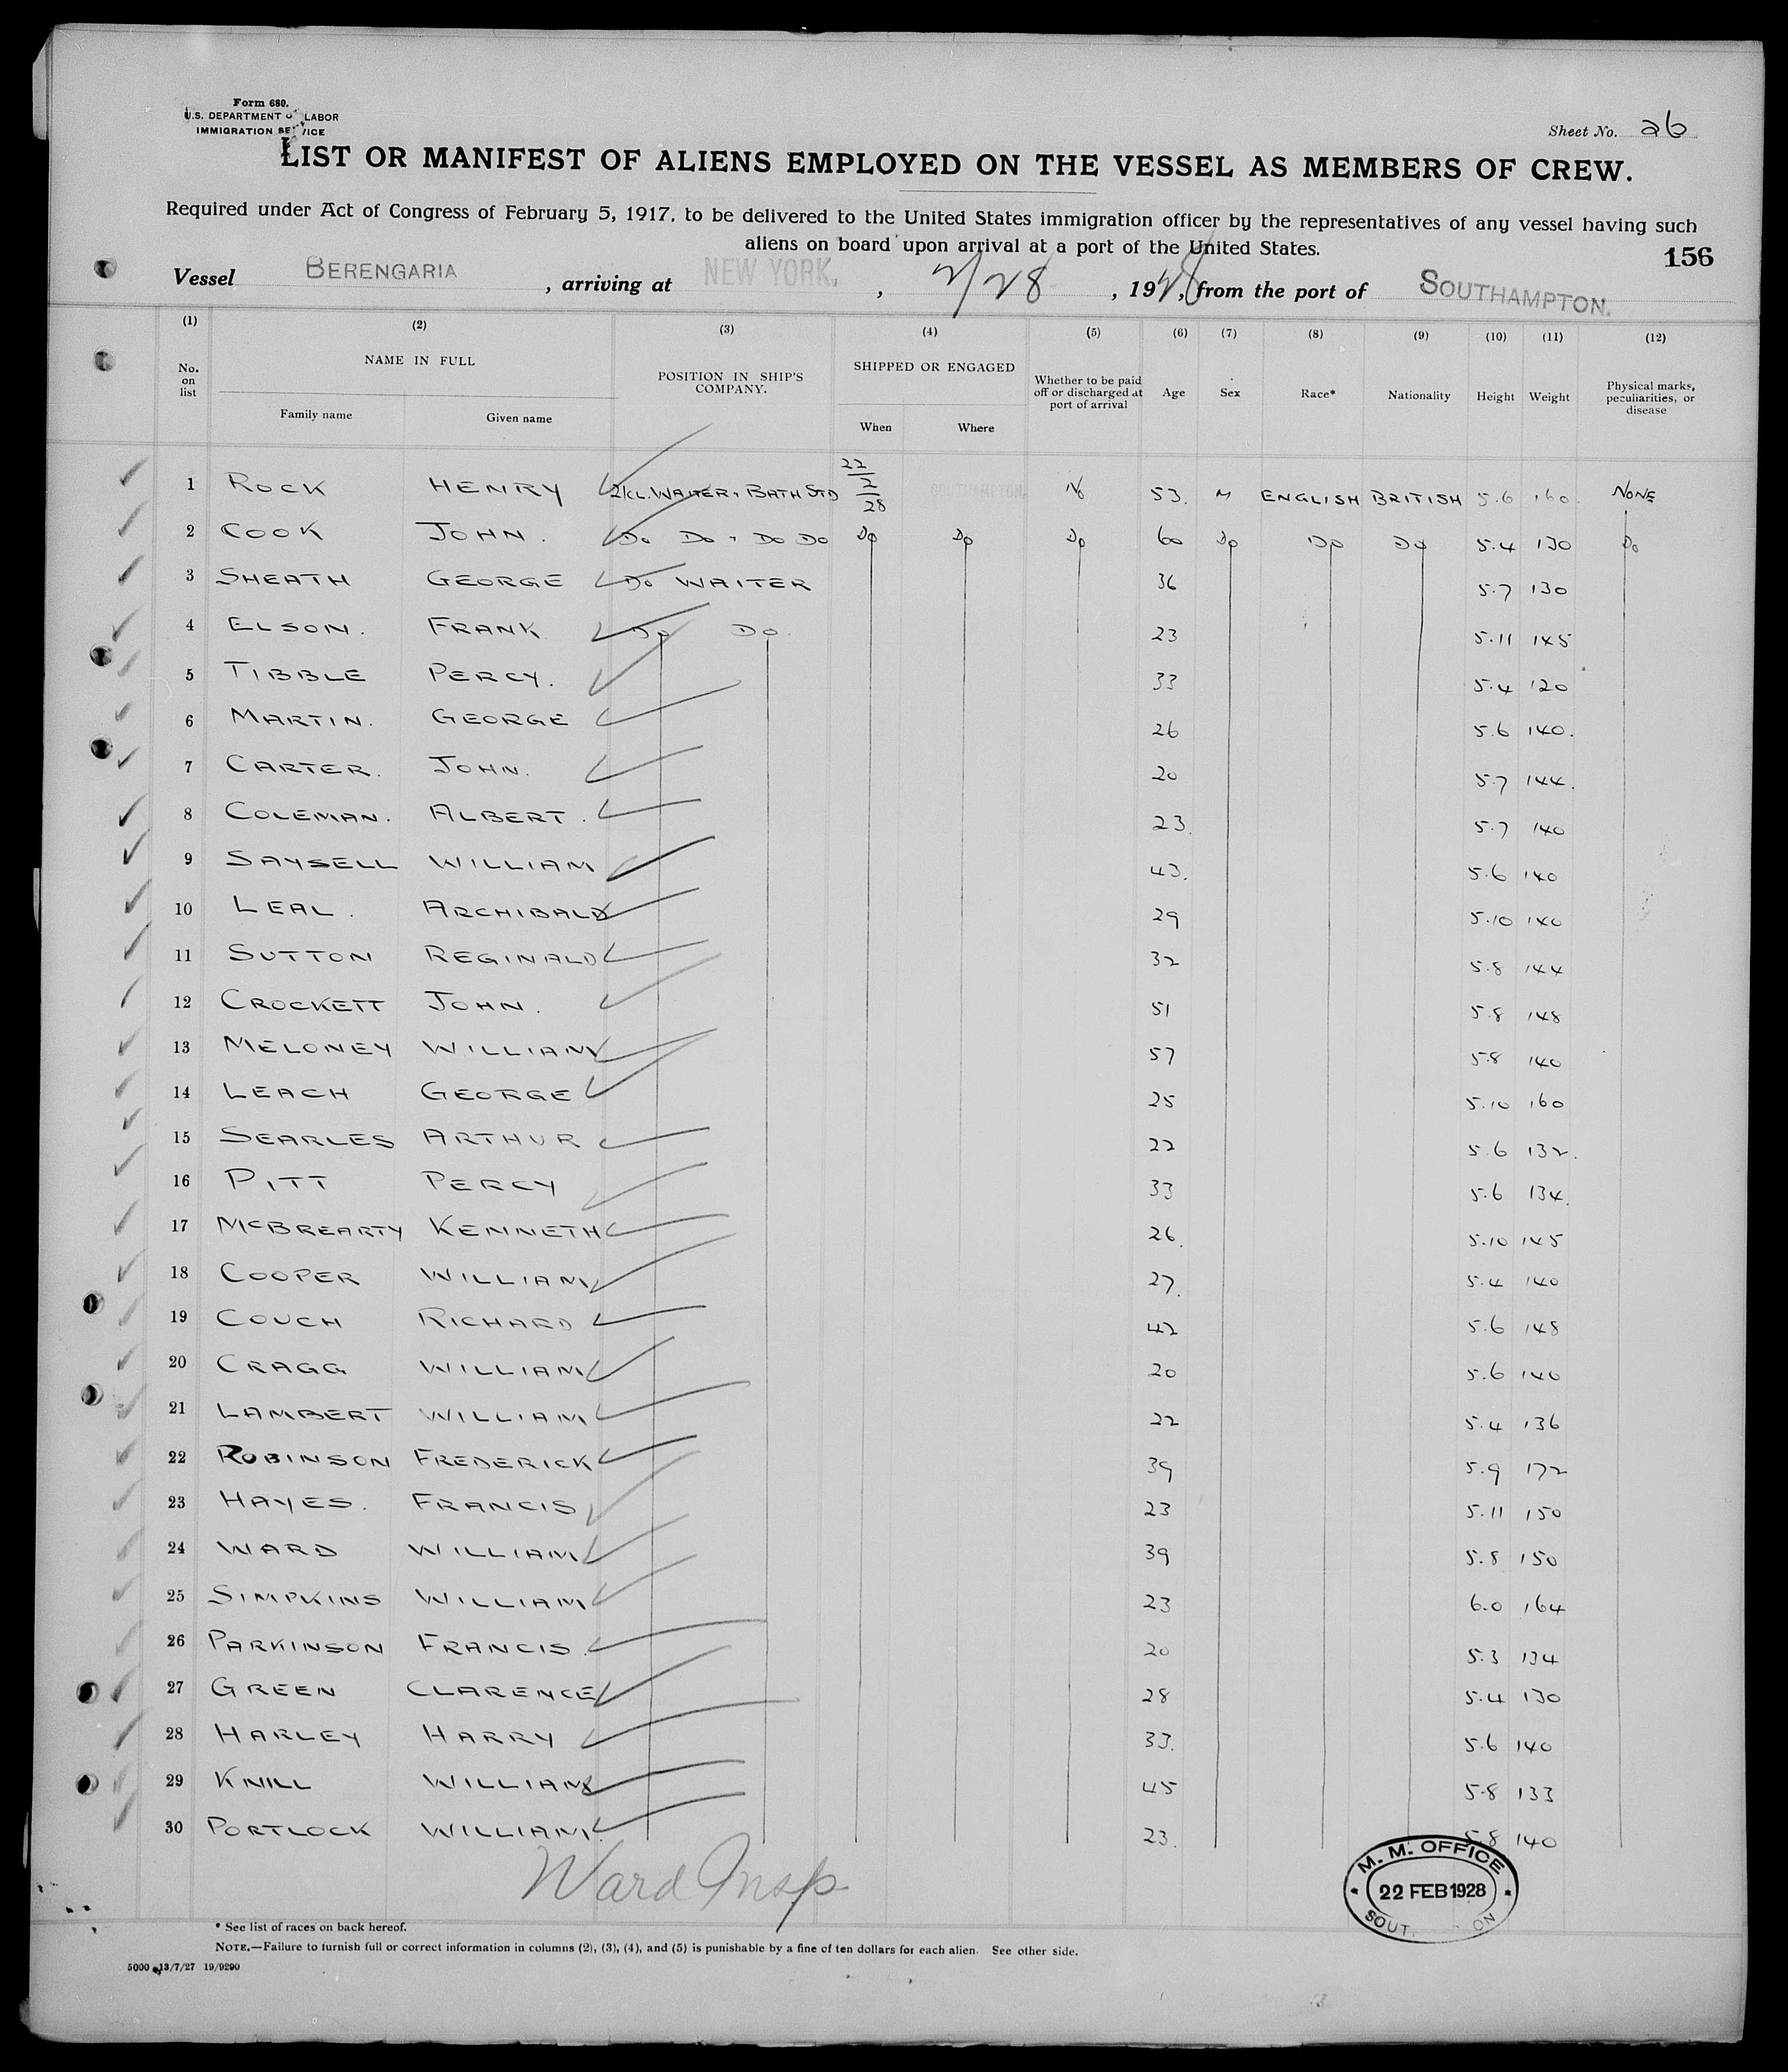 Form 680.
U.S. DEPARTMENT OF LABOR
IMMIGRATION SERVICE
Sheet No. 26
LIST OR MANIFEST OF ALIENS EMPLOYED ON THE VESSEL AS MEMBERS OF CREW.
Required under Act of Congress of February 5, 1917, to be delivered to the United States immigration officer by the representatives of any vessel having such
aliens on board upon arrival at a port of the United States.
156
Vessel BERENGARIA, arriving at NEW YORK, 2/28, 1928, from the port of SOUTHAMPTON.
(1) (2) (3) (4) (5) (6) (7) (8) (9) (10) (11) (12)
No. on list NAME IN FULL POSITION IN SHIP'S COMPANY. SHIPPED OR ENGAGED Whether to be paid off or discharged at port of arrival Age Sex Race* Nationality Height Weight Physical marks, peculiarities, or disease
Family name Given name When Where
1 ROCK HENRY 2KL. WAITER & BATH STD 22/2/28 SOUTHAMPTON. No 53. M ENGLISH BRITISH 5.6 160. NONE
2 COOK JOHN. Do Do " Do Do Do Do Do 60 Do Do Do 5.4 130 Do
3 SHEATH GEORGE Do WAITER 36 5.7 130
4 ELSON. FRANK Do Do. 23 5.11 145
5 TIBBLE PERCY. 33 5.4 120
6 MARTIN. GEORGE 26 5.6 140.
7 CARTER. JOHN. 20 5.7 144.
8 COLEMAN. ALBERT. 23. 5.7 140
9 SAYSELL WILLIAM 43. 5.6 140
10 LEAL. ARCHIBALD 29 5.10 140
11 SUTTON REGINALD 32 5.8 144
12 CROCKETT JOHN. 51 5.8 148
13 MELONEY WILLIAM 57 5.8 140
14 LEACH GEORGE 25 5.10 160
15 SEARLES ARTHUR 22 5.6 132.
16 PITT PERCY 33 5.6 134.
17 McBREARTY KENNETH 26. 5.10 145
18 COOPER WILLIAM 27. 5.4 140
19 COUCH RICHARD 42 5.6 148
20 CRAGG WILLIAM 20 5.6 140
21 LAMBERT WILLIAM 22 5.4 136
22 ROBINSON FREDERICK 39 5.9 172
23 HAYES. FRANCIS 23 5.11 150
24 WARD WILLIAM 39 5.8 150
25 SIMPKINS WILLIAM 23 6.0 164
26 PARKINSON FRANCIS. 20 5.3 134
27 GREEN CLARENCE 28 5.4 130
28 HARLEY HARRY 33. 5.6 140
29 KNILL WILLIAM 45 5.8 133
30 PORTLOCK WILLIAM. 23. 5.8 140
Ward Insp
M. M. OFFICE
22 FEB 1928
SOUT ON
* See list of races on back hereof.
NOTE.—Failure to furnish full or correct information in columns (2), (3), (4), and (5) is punishable by a fine of ten dollars for each alien. See other side.
5000 13/7/27 19/9290